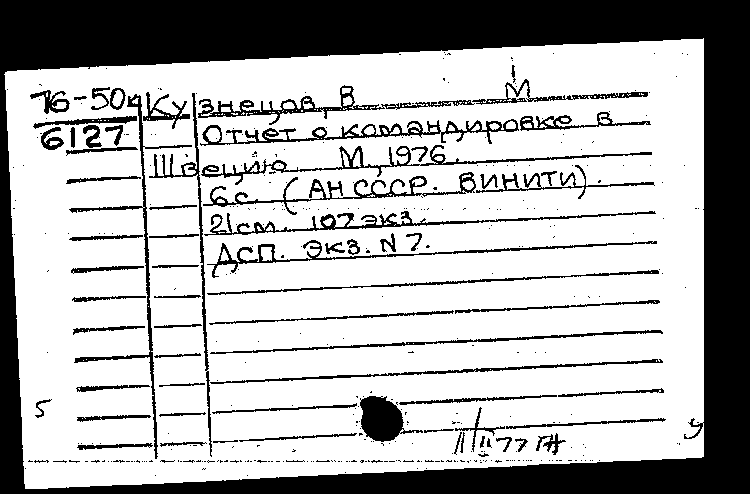 76-50к Кузнецов, В М
6127 Отчет о командировке в
Швецию М., 1976.
6 с. (АН СССР. ВИНИТИ).
21 см. 107 экз.
ДСП. Экз. N 7.
5
77